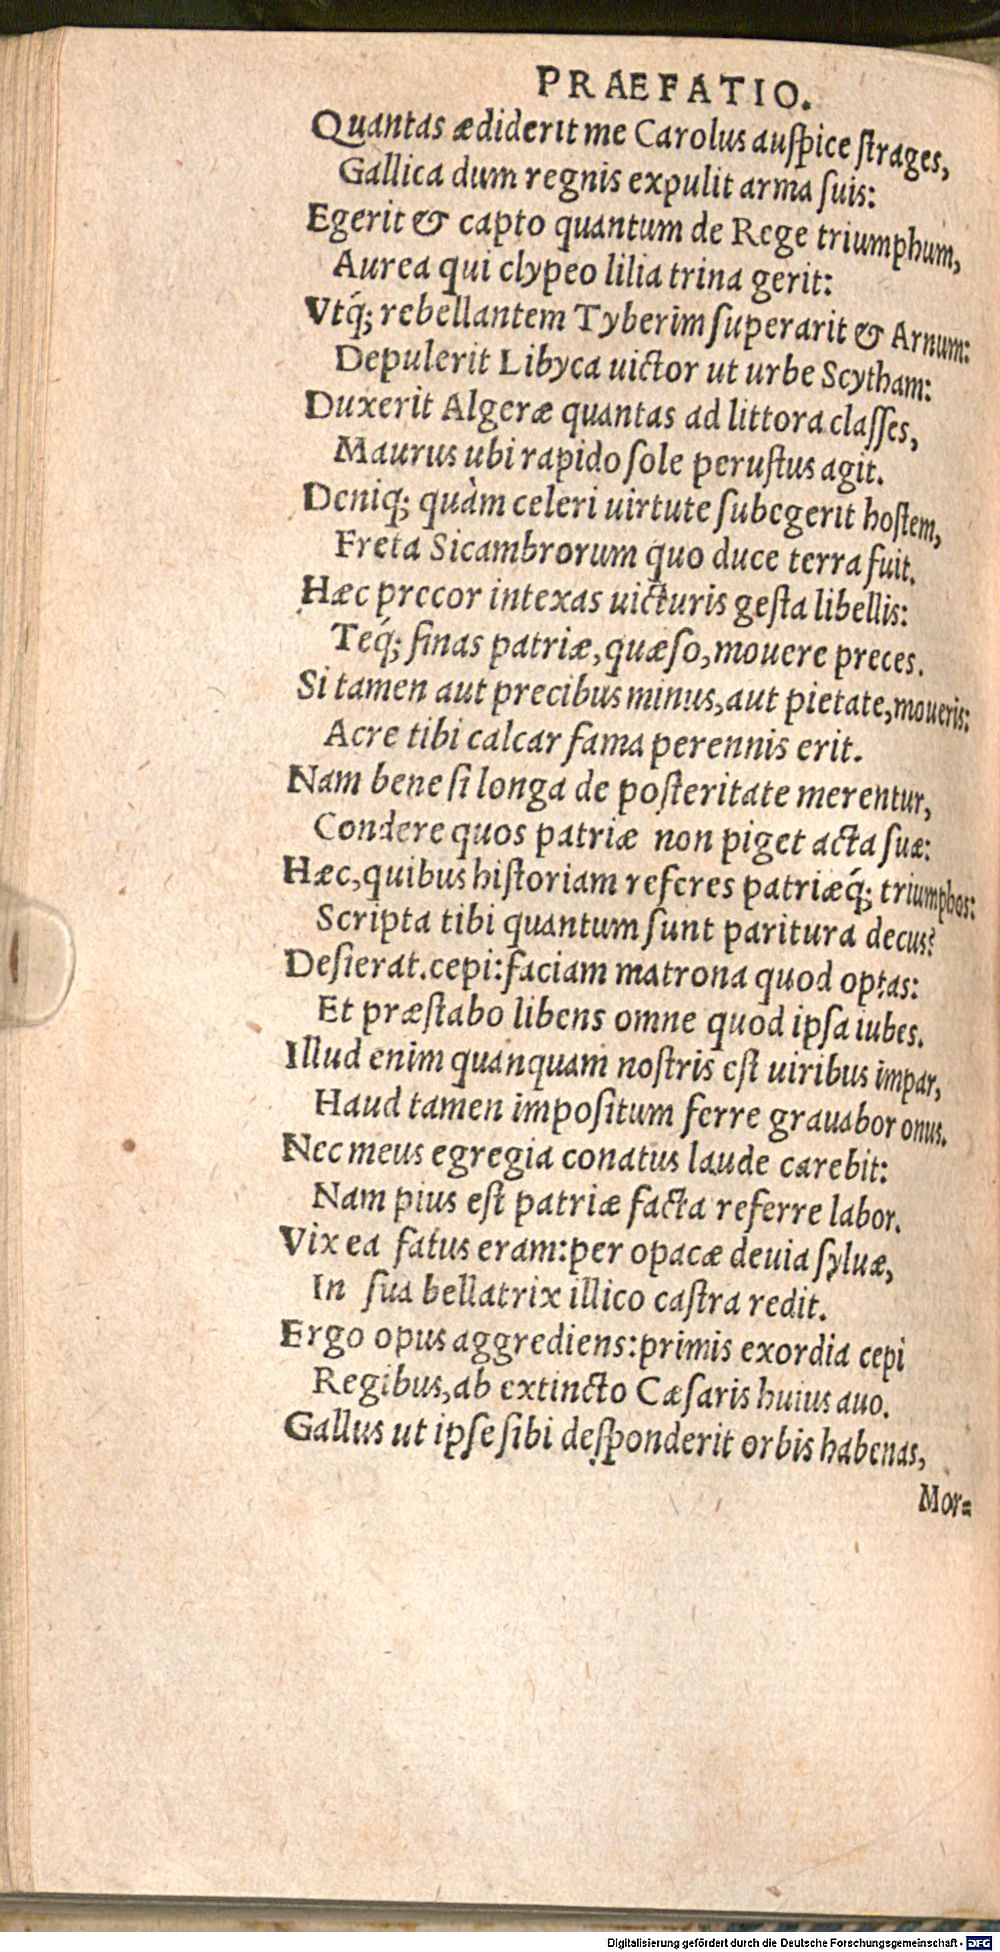 PRAEFATIO.
Quantas ædiderit me Carolus auſpice ſtrages,
Gallica dum regnis expulit arma ſuis:
Egerit & capto quantum de Rege triumphum,
Aurea qui clypeo lilia trina gerit:
Vtq́; rebellantem Tyberim ſuperarit & Arnum:
Depulerit Libyca uictor ut urbe Scytham:
Duxerit Algeræ quantas ad littora claſſes,
Maurus ubi rapido ſole peruſtus agit.
Deniq; quàm celeri uirtute ſubegerit hoſtem,
Freta Sicambrorum quo duce terra fuit.
Hæc precor intexas uicturis geſta libellis:
Teq́; ſinas patriæ, quæſo, mouere preces.
Si tamen aut precibus minus, aut pietate, moueris:
Acre tibi calcar fama perennis erit.
Nam bene ſi longa de poſteritate merentur,
Condere quos patriæ non piget acta ſuæ:
Hæc, quibus hiſtoriam referes patriæq́; triumphos:
Scripta tibi quantum ſunt paritura decus?
Deſierat. cepi: faciam matrona quod optas:
Et præſtabo libens omne quod ipſa iubes.
Illud enim quanquam noſtris eſt uiribus impar,
Haud tamen impoſitum ferre grauabor onus.
Nec meus egregia conatus laude carebit:
Nam pius eſt patriæ facta referre labor.
Vix ea fatus eram: per opacæ deuia ſyluæ,
In ſua bellatrix illico caſtra redit.
Ergo opus aggrediens: primis exordia cepi
Regibus, ab extincto Cæſaris huius auo.
Gallus ut ipſe ſibi deſponderit orbis habenas,
Mor=
Digitalisierung gefördert durch die Deutsche Forschungsgemeinschaft - DFG